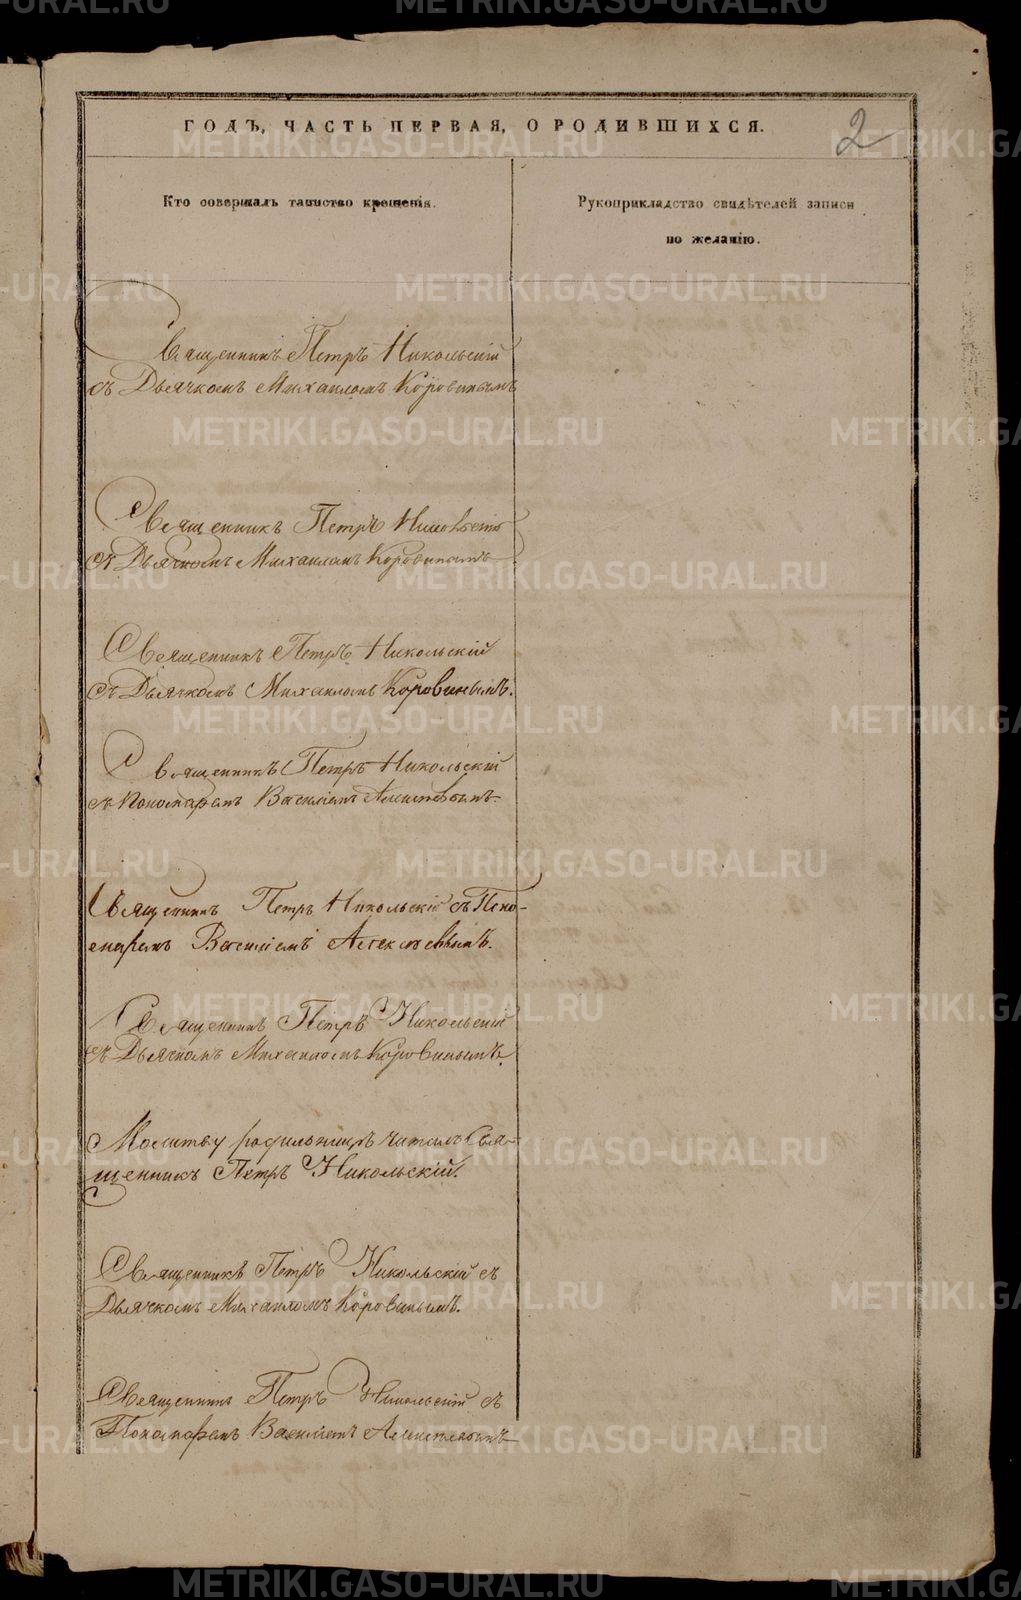 ГОДЪ, ЧАСТЬ ПЕРВАЯ, О РОДИВШИХСЯ.
2
Кто совершалъ таинство крещенія.
Рукоприкладство свидѣтелей записи
по желанію.
Священникъ Петръ Никольскій
съ Дьячкомъ Михаиломъ Коровинымъ
Священникъ Петръ Никольскій
съ Дьячкомъ Михаиломъ Коровинымъ
Священникъ Петръ Никольскій
съ Дьячкомъ Михаиломъ Коровинымъ.
Священникъ Петръ Никольскій
съ Пономаремъ Василіемъ Алексѣевымъ.
Священникъ Петръ Никольскій съ Поно-
маремъ Василіемъ Алексѣевымъ.
Священникъ Петръ Никольскій
съ Дьячкомъ Михаиломъ Коровинымъ.
Молитву родильницѣ читалъ Свя-
щенникъ Петръ Никольскій.
Священникъ Петръ Никольскій съ
Дьячкомъ Михаиломъ Коровинымъ.
Священникъ Петръ Никольскій съ
Пономаремъ Василіемъ Алексѣевымъ
METRIKI.GASO-URAL.RU